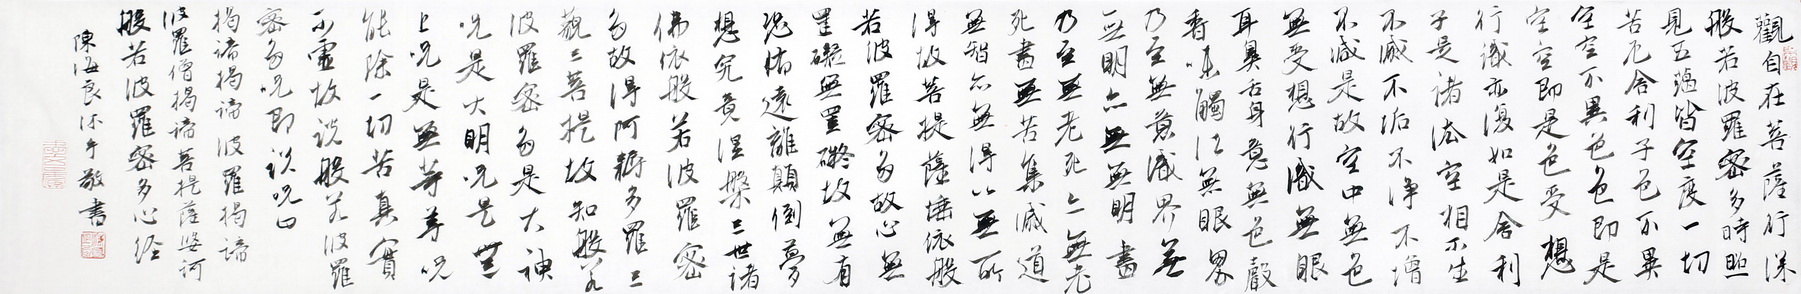 觀自在菩薩行深
般若波羅密多時照
見五蘊皆空度一切
苦厄舍利子色不異
空空不異色色即是
空空即是色受想
行識亦復如是舍利
子是諸法空相不生
不滅不垢不淨不增
不減是故空中無色
無受想行識無眼
耳鼻舌身意無色聲
香味觸法無眼界
乃至無意識界無
無明亦無無明盡
乃至無老死亦無老
死盡無苦集滅道
無智亦無得以無所
得故菩提薩埵依般
若波羅密多故心無
罣礙無罣礙故無有
恐怖遠離顛倒夢
想究竟涅槃三世諸
佛依般若波羅密
多故得阿耨多羅三
藐三菩提故知般若
波羅密多是大神
咒是大明咒是無
上咒是無等等咒
能除一切苦真實
不虛故說般若波羅
密多咒即說咒曰
揭諦揭諦波羅揭諦
波羅僧揭諦菩提薩婆訶
般若波羅密多心經
陳海良沐手敬書